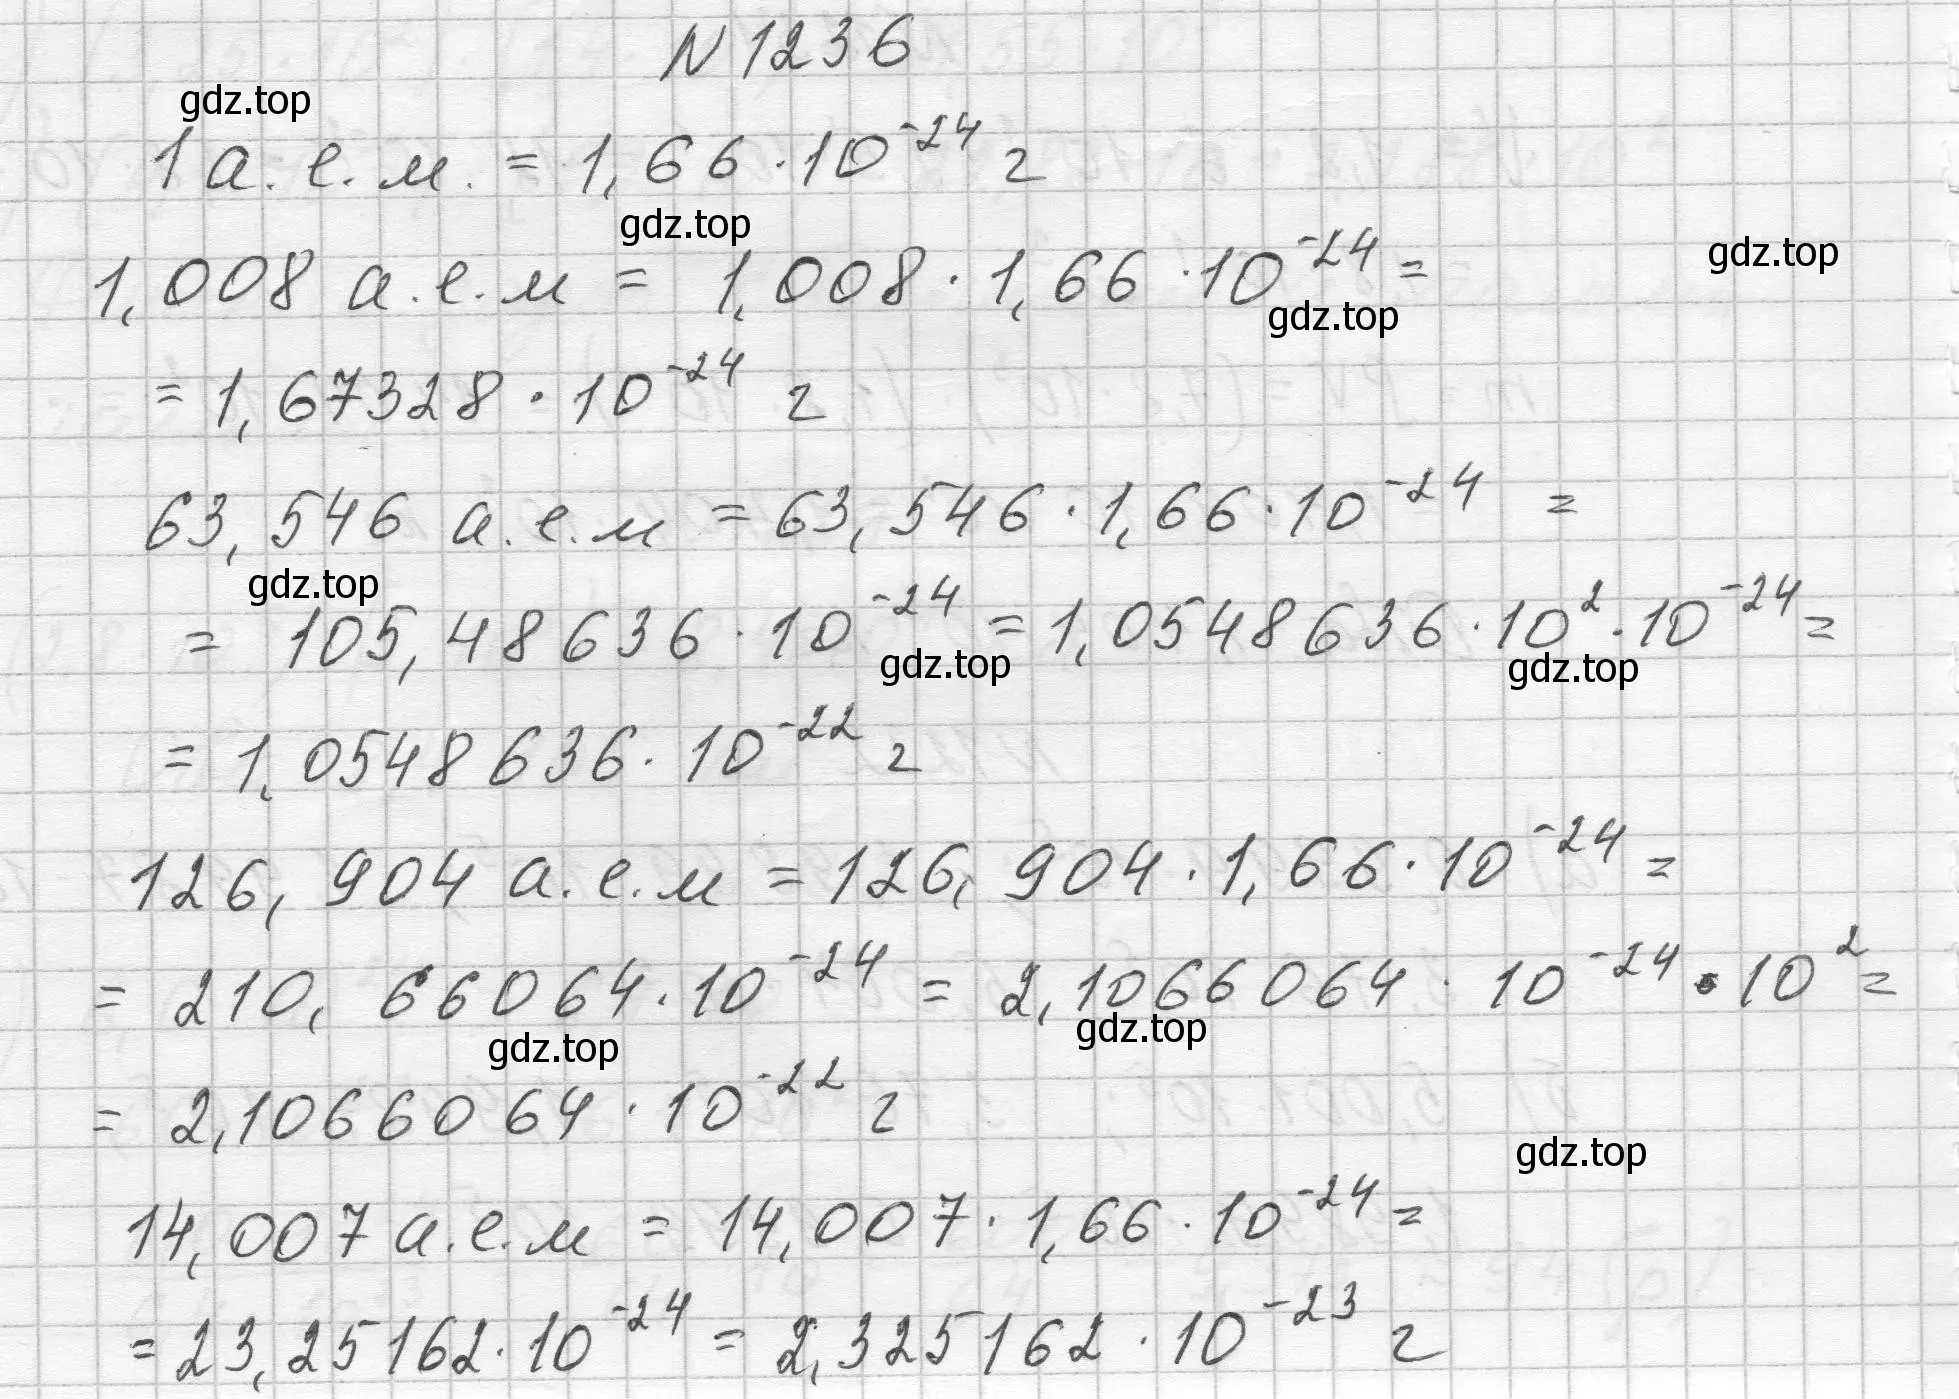 N 1236
gdz.top
1 а.е.м. = 1,66 · 10⁻²⁴ г
gdz.top
1,008 а.е.м = 1,008 · 1,66 · 10⁻²⁴ =
gdz.top
gdz.top
= 1,67328 · 10⁻²⁴ г
63,546 а.е.м = 63,546 · 1,66 · 10⁻²⁴ =
gdz.top
= 105,48636 · 10⁻²⁴ = 1,0548636 · 10² · 10⁻²⁴ =
gdz.top
gdz.top
= 1,0548636 · 10⁻²² г
126,904 а.е.м = 126,904 · 1,66 · 10⁻²⁴ =
= 210,66064 · 10⁻²⁴ = 2,1066064 · 10⁻²⁴ · 10² =
gdz.top
gdz.top
= 2,1066064 · 10⁻²² г
gdz.top
14,007 а.е.м = 14,007 · 1,66 · 10⁻²⁴ =
= 23,25162 · 10⁻²⁴ = 2,325162 · 10⁻²³ г